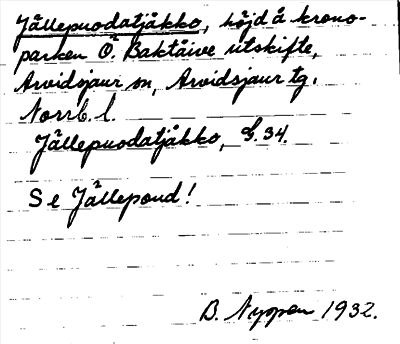 Jållepuodatjåkko, höjd å krono-
parken Ö. Baktåive utskifte,
Arvidsjaur sn, Arvidsjaur tg.
Norrb. l.
Jållepuodatjåkko, G. 34.
Se Jållepoud!
B. Nyman 1932.